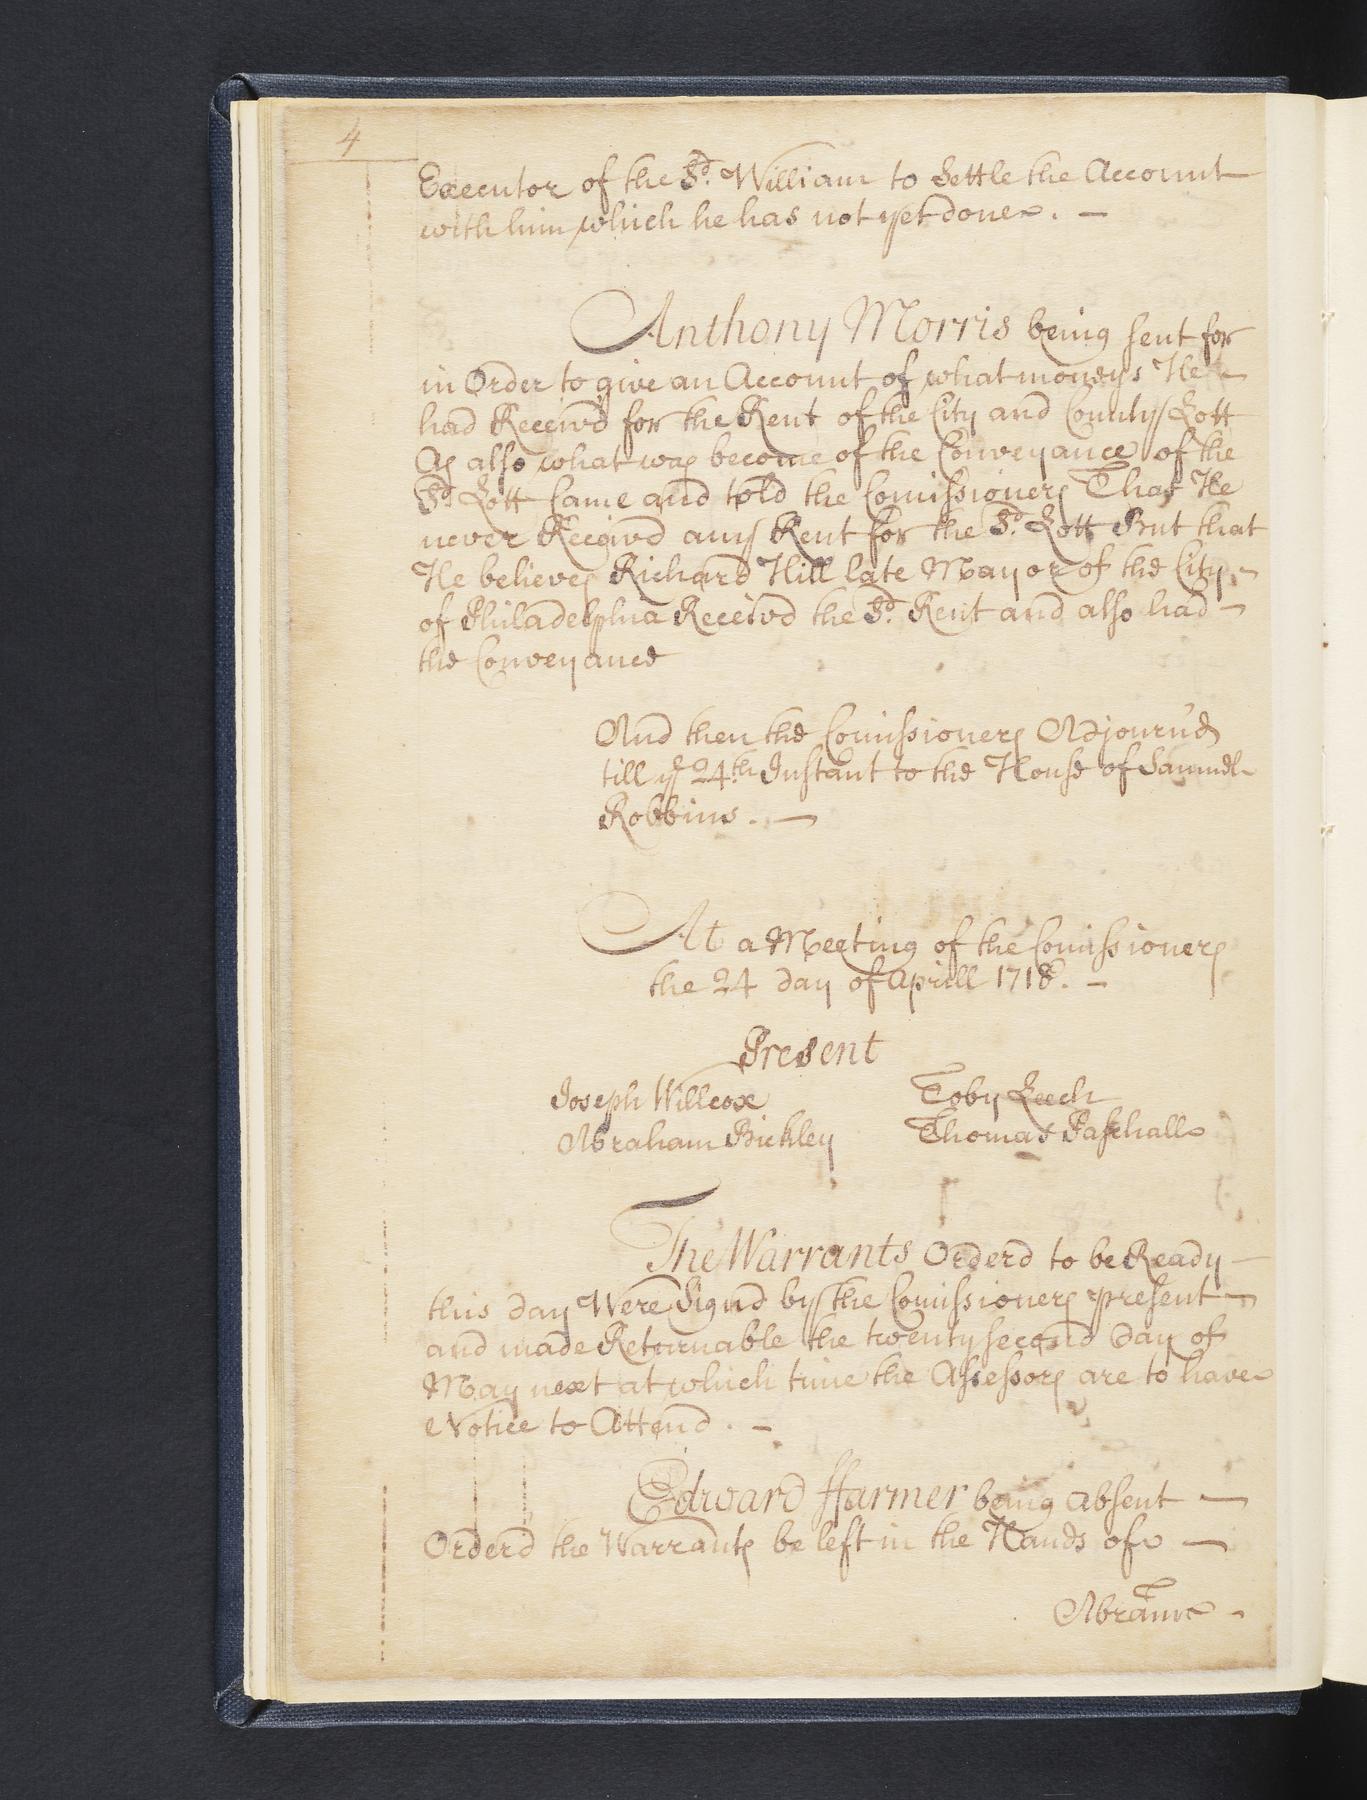 4
Executor of the Sd. William to Settle the Account
with him which he has not yet done. —
Anthony Morris being sent for
in Order to give an Account of what moneys He —
had Receivd for the Rent of the City and County Lott
As also what was become of the Conveyance of the
Sd Lott Came and told the Comissioners That He
never Receivd any Rent for the Sd. Lott But that
He believes Richard Hill late Mayor of the City —
of Philadelphia Receivd the Sd. Rent and also had —
the Conveyance
And then the Comissioners Adjourn'd
till ye 24th Instant to the House of Samuel
Robbins. —
At a Meeting of the Comissioners
the 24 day of Aprill 1718. —
Present
Joseph Willcox Toby Leech
Abraham Bickley Thomas Paschall
The Warrants Orderd to be Ready —
this day Were Signd by the Comissioners present —
and made Returnable the twenty second Day of
May next at which time the Assessors are to have
Notice to Attend. —
Edward ffarmer being absent —
Orderd the Warrants be left in the Hands of —